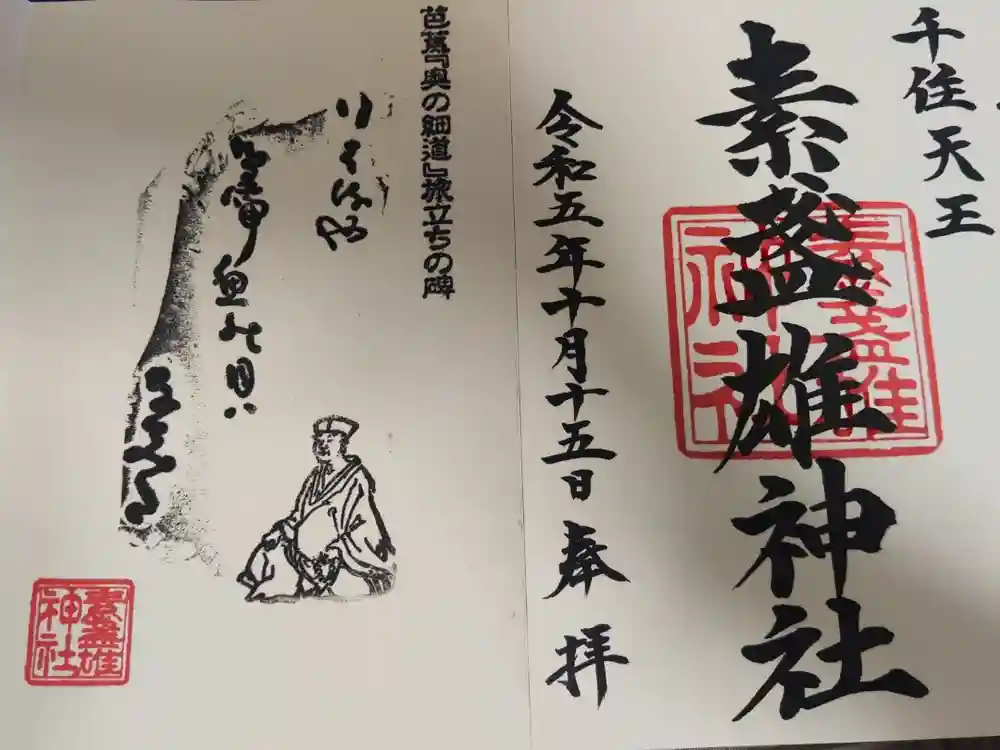 千住天王
素盞雄神社
令和五年十月十五日 奉拝
芭蕉『奥の細道』旅立ちの碑
行はるや
鳥啼魚の目ハ
なみだ
素盞雄
神社